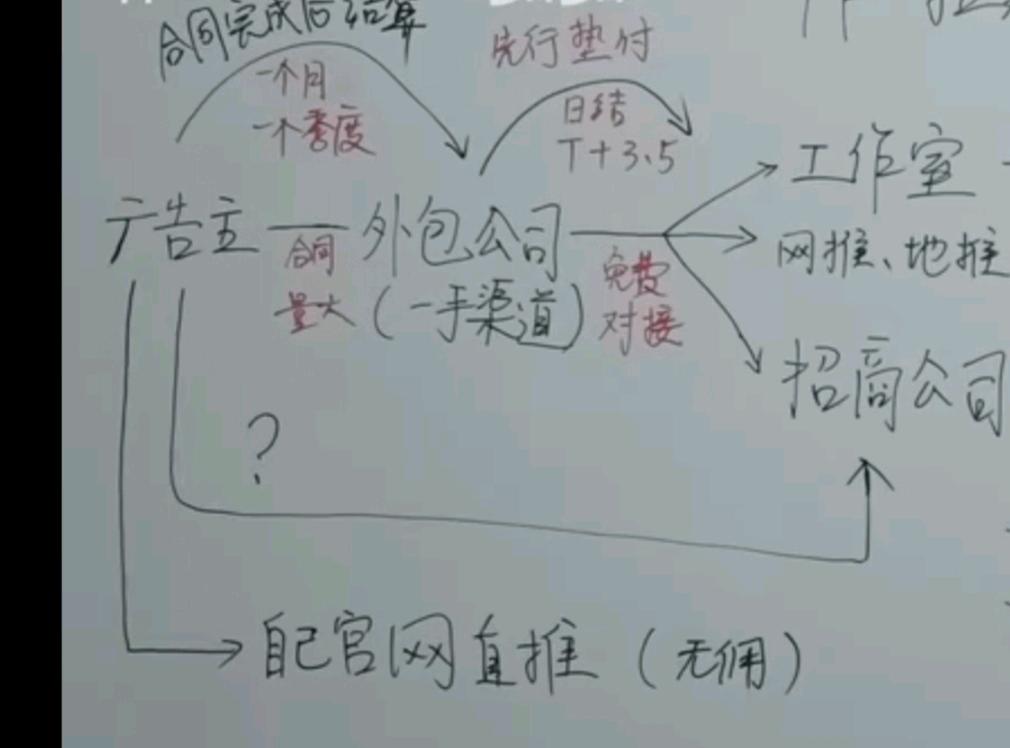 合同完成后结算
先行垫付
一个月
一个季度
日结
T+3.5
工作室
广告主
外包公司
网推、地推
合同
量大
(一手渠道)
免费
对接
招商公司
?
自己官网直推(无佣)